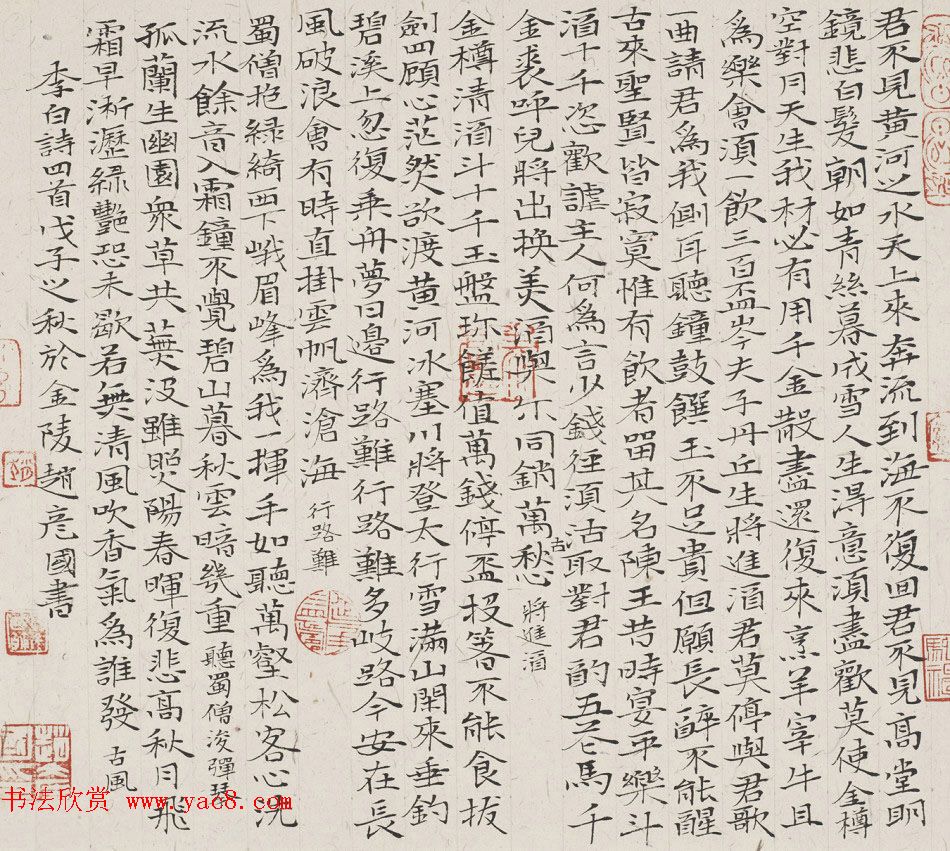 君不見黃河之水天上來奔流到海不復回君不見高堂明
鏡悲白髮朝如青絲暮成雪人生得意須盡歡莫使金樽
空對月天生我材必有用千金散盡還復來烹羊宰牛且
為樂會須一飲三百盃岑夫子丹丘生將進酒君莫停與君歌
一曲請君為我側耳聽鐘鼓饌玉不足貴但願長醉不能醒
古來聖賢皆寂寞惟有飲者留其名陳王昔時宴平樂斗
酒十千恣歡謔主人何為言少錢徑須沽取對君酌五花馬千
金裘呼兒將出換美酒與尒同銷萬古愁 將進酒
金樽清酒斗十千玉盤珎饈值萬錢停盃投箸不能食拔
劍四顧心茫然欲渡黃河冰塞川將登太行雪滿山閑來垂釣
碧溪上忽復乘舟夢日邊行路難行路難多岐路今安在長
風破浪會有時直掛雲帆濟滄海 行路難
蜀僧抱綠綺西下峨眉峰為我一揮手如聽萬壑松客心洗
流水餘音入霜鐘不覺碧山暮秋雲暗幾重 聽蜀僧浚彈琴
孤蘭生幽園眾草共蕪沒雖照陽春暉復悲高秋月飛
霜早淅瀝綠艷恐未歇若無清風吹香氣為誰發 古風
李白詩四首戊子之秋於金陵趙彥國書
书法欣赏 www.yac8.com